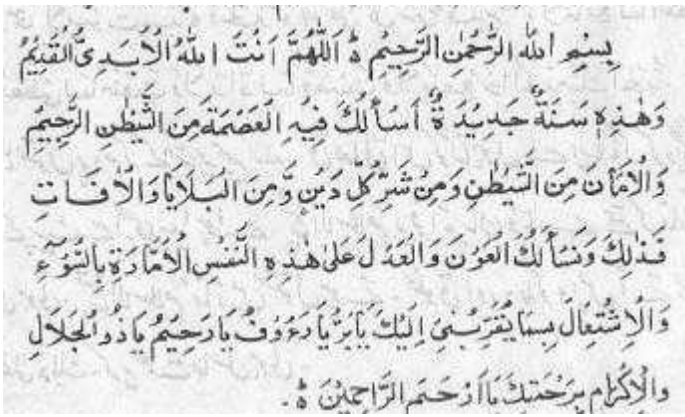 بِسْمِ اللهِ الرَّحْمٰنِ الرَّحِيْمِ ۃ اَللّٰهُمَّ اَنْتَ اللهُ الْاَبَدِىُّ الْقَدِيْمُ
وَهٰذِهٖ سَنَةٌ جَدِيْدَةٌ اَسْأَلُكَ فِيْهِ الْعَصْمَةَ مِنَ الشَّيْطٰنِ الرَّجِيْمِ
وَالْاَمَانَ مِنَ الشَّيْطٰنِ وَمِنْ شَرِّ كُلِّ دَيْنٍ وَّمِنَ الْبَلَايَا وَالْاٰفَاتِ
فَذٰلِكَ وَنَسْأَلُكَ الْعَوْنَ وَالْعَدْلَ عَلٰى هٰذِهِ النَّفْسِ الْاَمَّارَةِ بِالسُّوْٓءِ
وَالْاِشْتِغَالَ بِمَا يُقَرِّبُنِىْ اِلَيْكَ يَا بَرُّ يَا رَءُوْفُ يَا رَحِيْمُ يَا ذُو الْجَلَالِ
وَالْاِكْرَامِ بِرَحْمَتِكَ يَا اَرْحَمَ الرَّاحِمِيْنَ ۃ.